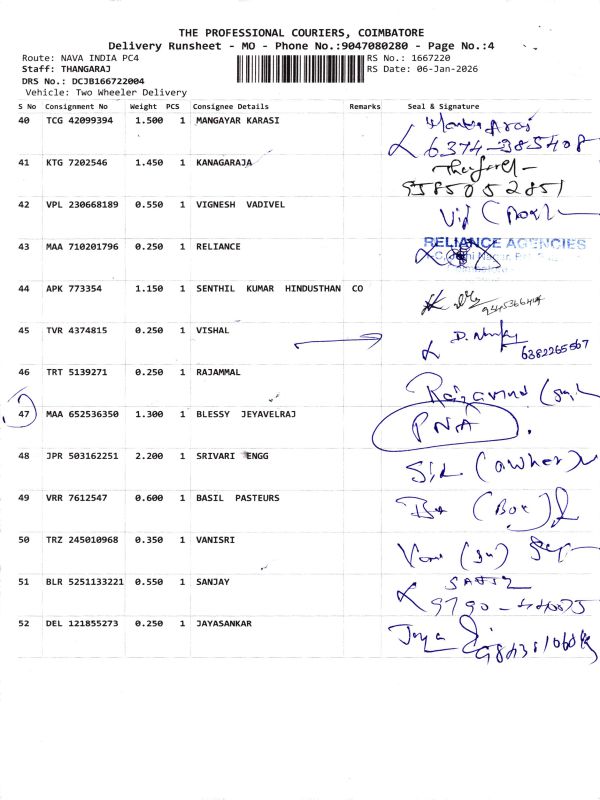 THE PROFESSIONAL COURIERS, COIMBATORE
Delivery Runsheet - MO - Phone No.:9047080280 - Page No.:4
Route: NAVA INDIA PC4
RS No.: 1667220
Staff: THANGARAJ
RS Date: 06-Jan-2026
DRS No.: DCJB166722004
Vehicle: Two Wheeler Delivery
S No Consignment No Weight PCS Consignee Details Remarks Seal & Signature
40 TCG 42099394 1.500 1 MANGAYAR KARASI
6374-385408
41 KTG 7202546 1.450 1 KANAGARAJA
9585052851
42 VPL 230668189 0.550 1 VIGNESH VADIVEL
43 MAA 710201796 0.250 1 RELIANCE RELIANCE AGENCIES
44 APK 773354 1.150 1 SENTHIL KUMAR HINDUSTHAN CO
45 TVR 4374815 0.250 1 VISHAL
6382265567
46 TRT 5139271 0.250 1 RAJAMMAL
47 MAA 652536350 1.300 1 BLESSY JEYAVELRAJ PNA
48 JPR 503162251 2.200 1 SRIVARI ENGG
49 VRR 7612547 0.600 1 BASIL PASTEURS (Box)
50 TRZ 245010968 0.350 1 VANISRI
51 BLR 5251133221 0.550 1 SANJAY
52 DEL 121855273 0.250 1 JAYASANKAR Jaya